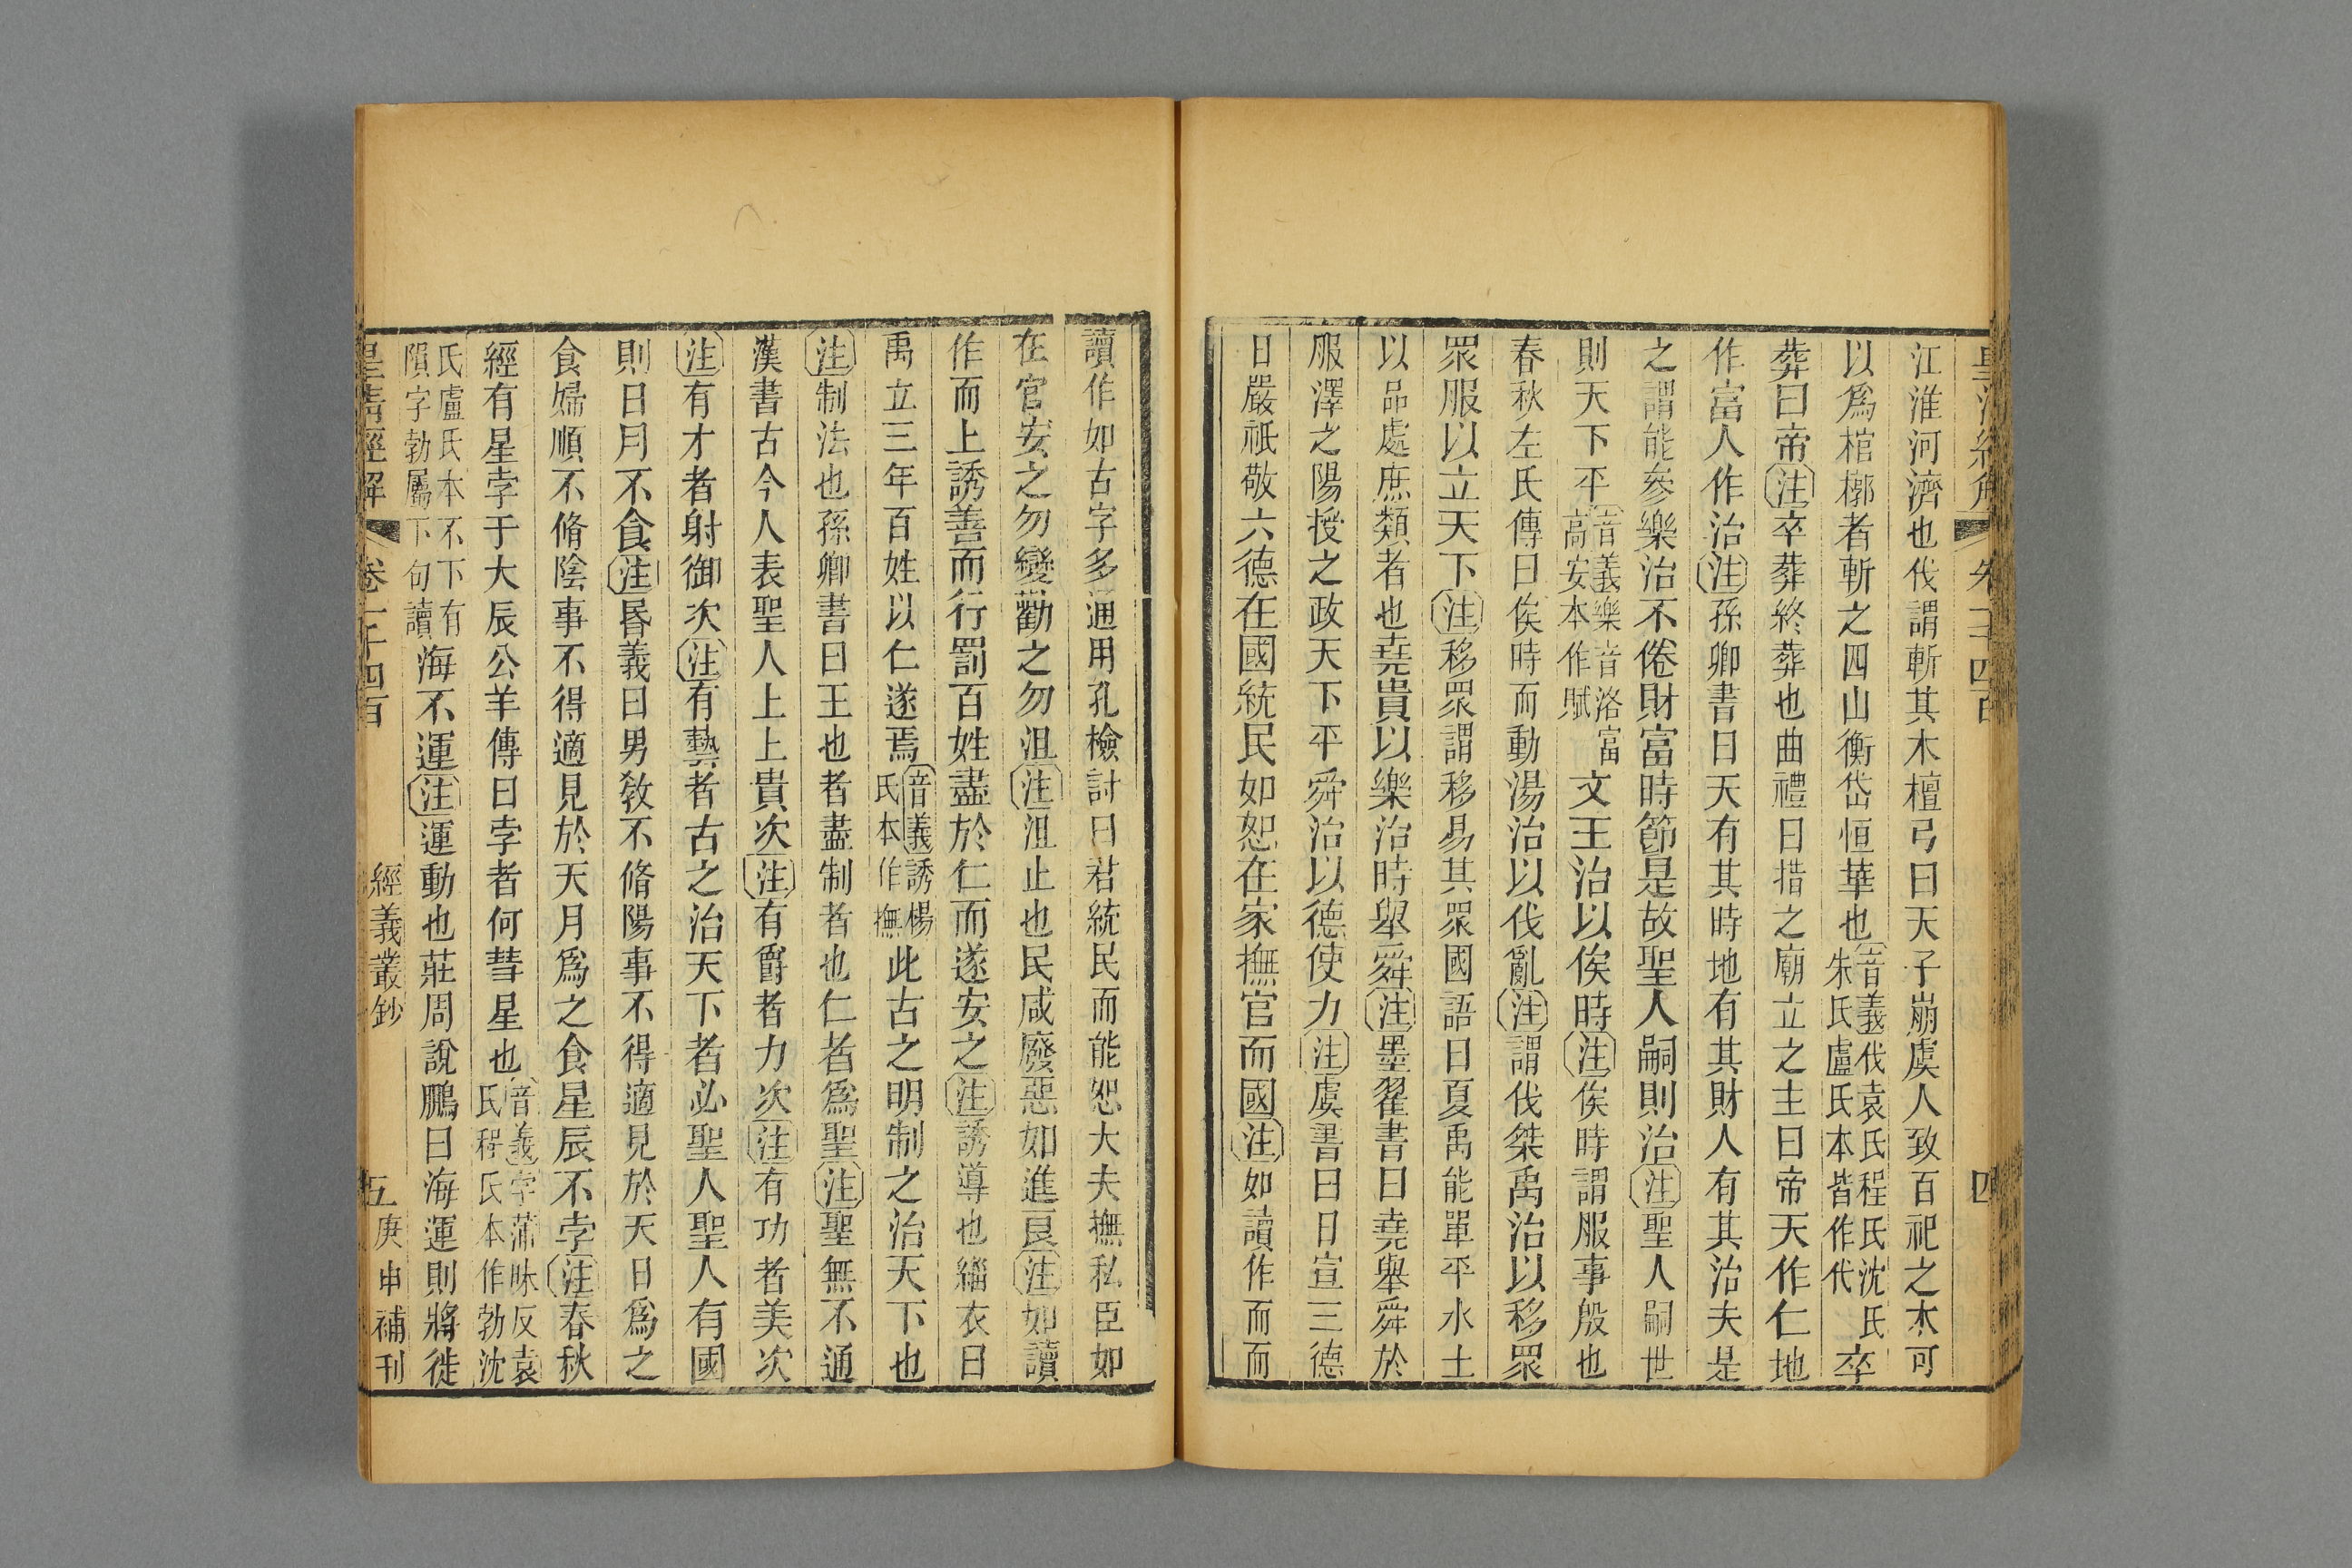 皇清經解
卷千四百
四
江淮河濟也伐謂斬其木檀弓曰天子崩虞人致百祀之木可
以爲棺槨者斬之四山衡岱恒華也音義伐袁氏程氏沈氏朱氏盧氏本皆作代卒
葬曰帝注卒葬終葬也曲禮曰措之廟立之主曰帝天作仁地
作富人作治注孫卿書曰天有其時地有其財人有其治夫是
之謂能參樂治不倦財富時節是故聖人嗣則治注聖人嗣世
則天下平音義樂音洛富高安本作賦文王治以俟時注俟時謂服事殷也
春秋左氏傳曰俟時而動湯治以伐亂注謂伐桀禹治以移眾
眾服以立天下注移眾謂移易其眾國語曰夏禹能單平水土
以品處庶類者也堯貴以樂治時舉舜注墨翟書曰堯舉舜於
服澤之陽授之政天下平舜治以德使力注虞書曰日宣三德
日嚴祇敬六德在國統民如恕在家撫官而國注如讀作而而
讀作如古字多通用孔檢討曰君統民而能恕大夫撫私臣如
在官安之勿變勸之勿沮注沮止也民咸廢惡如進良注如讀
作而上誘善而行罰百姓盡於仁而遂安之注誘導也緇衣曰
禹立三年百姓以仁遂焉音義誘楊氏本作撫此古之明制之治天下也
注制法也孫卿書曰王也者盡制者也仁者爲聖注聖無不通
漢書古今人表聖人上上貴次注有爵者力次注有功者美次
注有才者射御次注有藝者古之治天下者必聖人聖人有國
則日月不食注昏義曰男敎不脩陽事不得適見於天日爲之
食婦順不脩陰事不得適見於天月爲之食星辰不孛注春秋
經有星孛于大辰公羊傳曰孛者何彗星也音義孛蒲昧反袁氏程氏本作勃沈
氏盧氏本不下有隕字勃屬下句讀海不運注運動也莊周說鵬曰海運則將徙
皇清經解
卷一千四百
經義叢鈔
五
庚申補刊